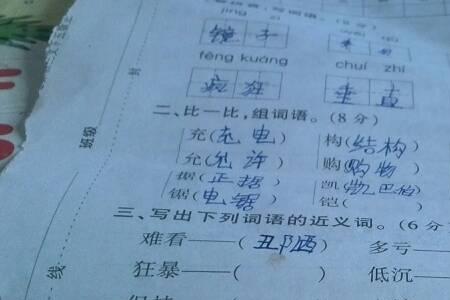 镜子
fēng kuáng chuí zhí
疯狂 垂直
二、比一比,组词语。(8分)
充(充电) 构(结构)
允(允许) 购(购物)
据(证据) 凯(凯巴伯)
锯(电锯) 铠( )
三、写出下列词语的近义词。(6分
难看——(丑陋) 多亏——(
狂暴——( ) 低沉——(
班级
封
线